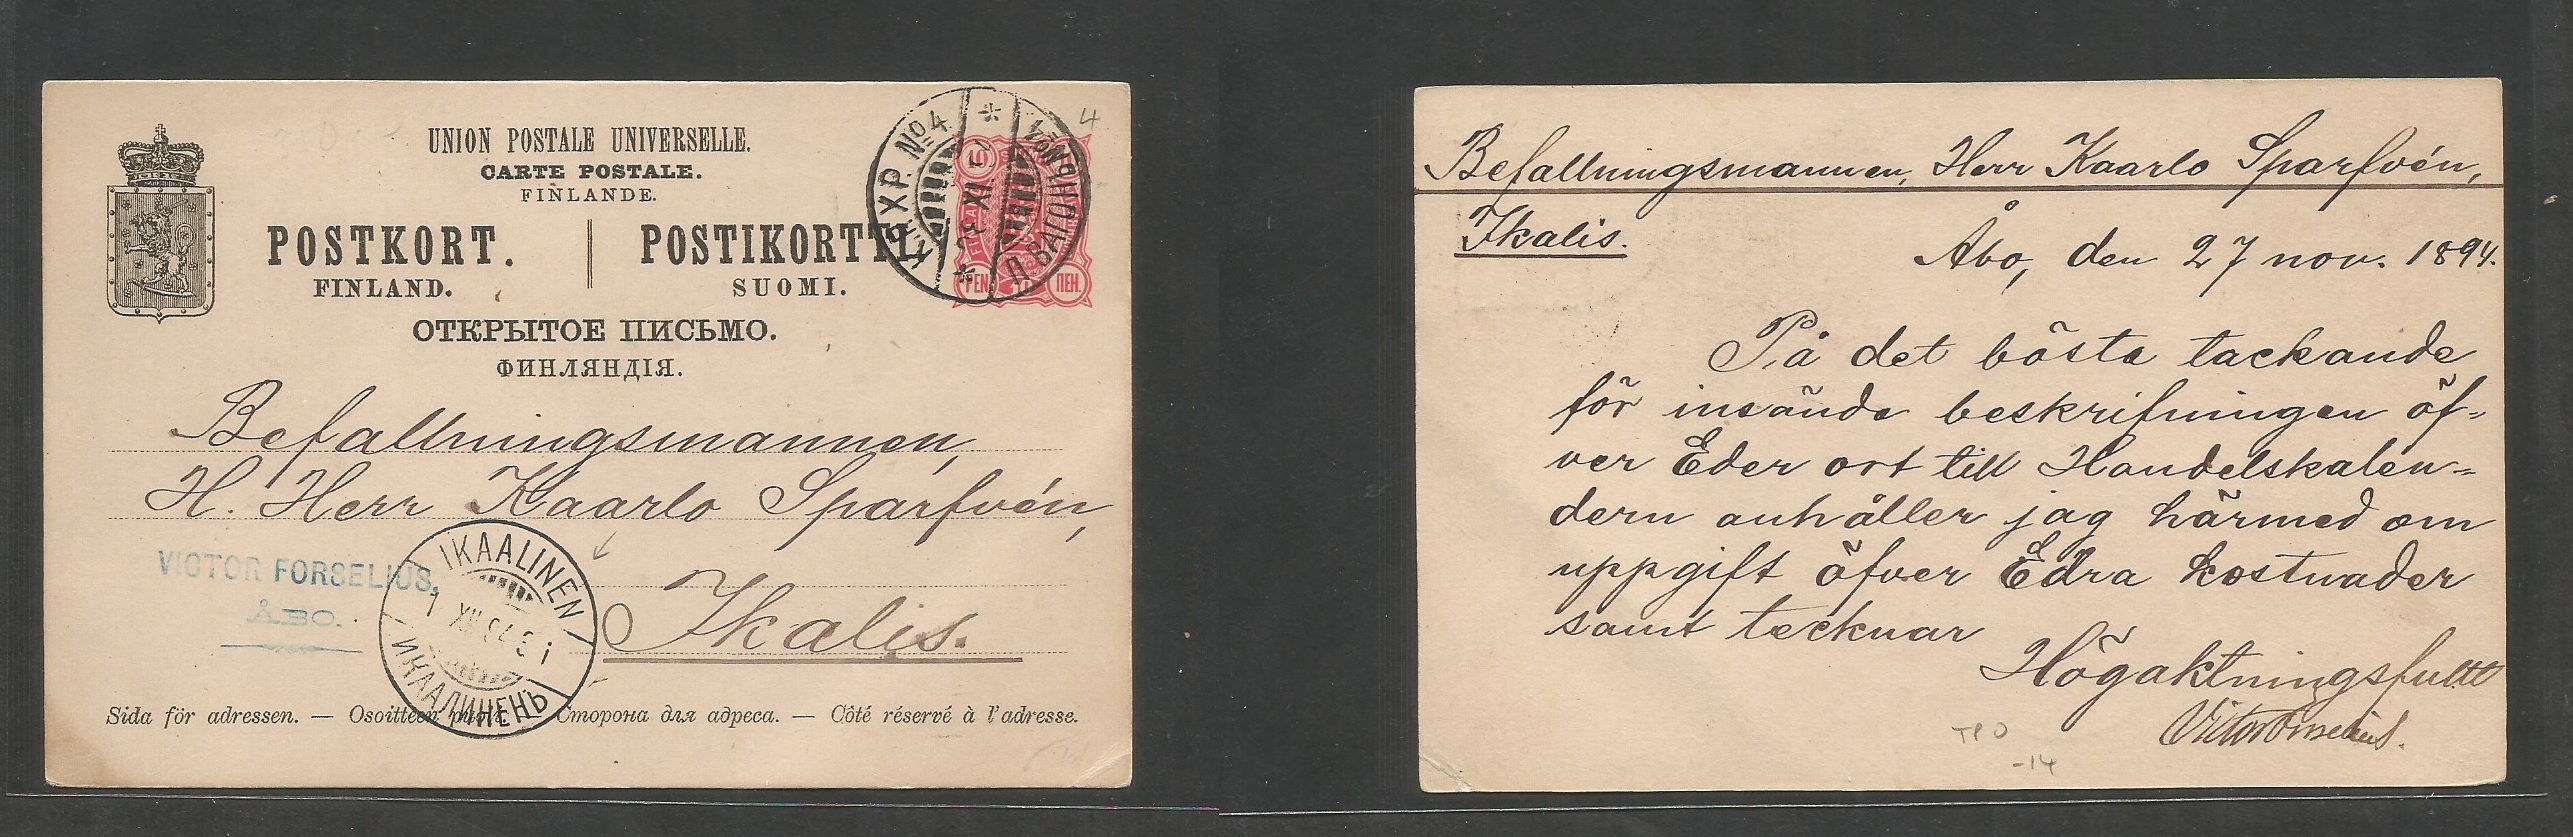 UNION POSTALE UNIVERSELLE.
CARTE POSTALE.
FINLANDE.
POSTKORT. | POSTIKORTTI.
FINLAND. SUOMI.
ОТКРЫТОЕ ПИСЬМО.
ФИНЛЯНДІЯ.
K.P.XP. No 4.
10
PEN ПЕН.
4
Befallningsmannen,
H. Herr Kaarlo Sparfvén,
Ikalis.
VICTOR FORSELIUS,
ÅBO.
IKAALINEN
1 XII 94
ИКААЛИНЕНЪ
Sida för adressen. — Osoitteen puoli. — Сторона для адреса. — Côté réservé à l'adresse.
Befallningsmannen, Herr Kaarlo Sparfvén,
Ikalis.
Åbo, den 27 nov. 1894.
På det bästa tackande
för insända beskrifningen öf-
ver Eder ort till Handelskalen-
dern anhåller jag härmed om
uppgift öfver Edra kostnader
samt tecknar
Högaktningsfullt
Victor Forselius.
TPO
-14